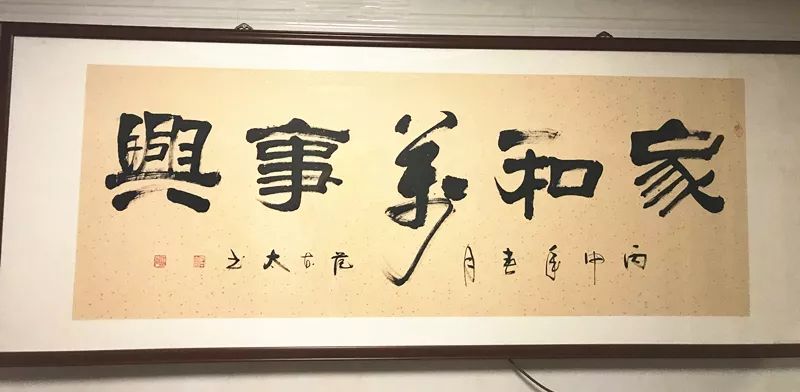 家和萬事興
丙申年春月 范 太 书